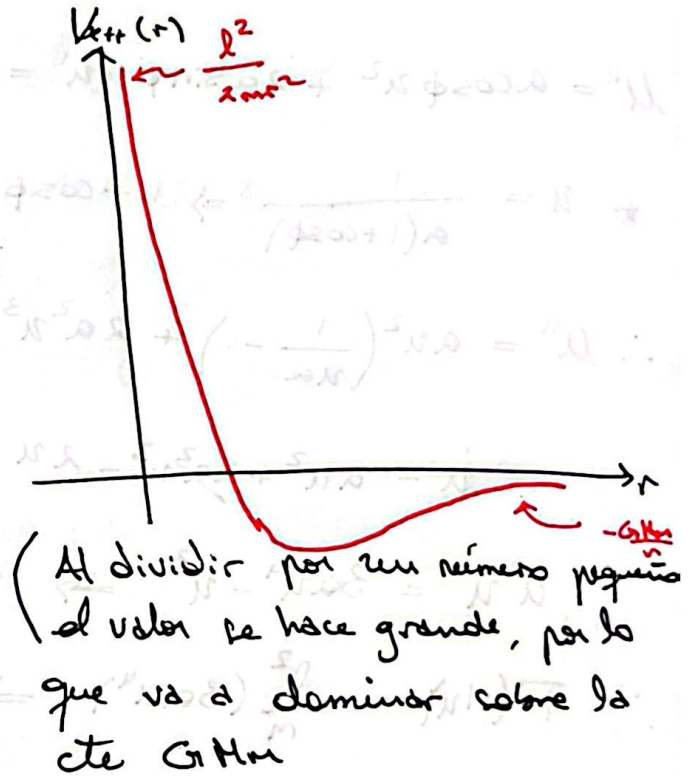 Veff (r)
l²
2mr²
r
-GMm
r
(Al dividir por un número pequeño
el valor se hace grande, por lo
que va a dominar sobre la
cte GMm